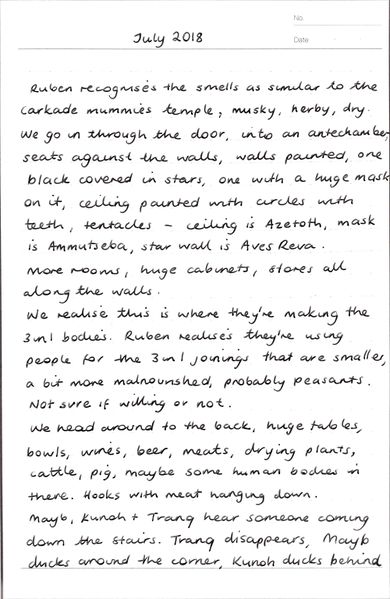 No.
July 2018
Date
Ruben recognises the smells as similar to the
Carkade mummies temple, musky, herby, dry.
We go in through the door, into an antechamber
seats against the walls, walls painted, one
black covered in stars, one with a huge mask
on it, ceiling painted with circles with
teeth, tentacles - ceiling is Azetoth, mask
is Ammutseba, star wall is Aves Reva.
More rooms, huge cabinets, stores all
along the walls.
We realise this is where they're making the
3in1 bodies. Ruben realises they're using
people for the 3in1 joinings that are smaller,
a bit more malnourished, probably peasants.
Not sure if willing or not.
We head around to the back, huge tables,
bowls, wines, beer, meats, drying plants,
cattle, pig, maybe some human bodies in
there. Hooks with meat hanging down.
Mayb, Kunoh + Tranq hear someone coming
down the stairs. Tranq disappears, Mayb
ducks around the corner, Kunoh ducks behind